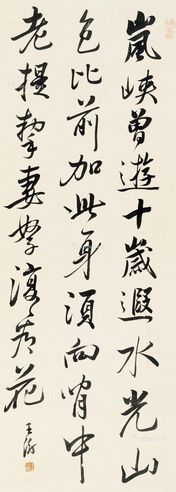 嵐峽曾遊十歲遐水光山
色比前加此身須向中
老提挈妻孥復看花